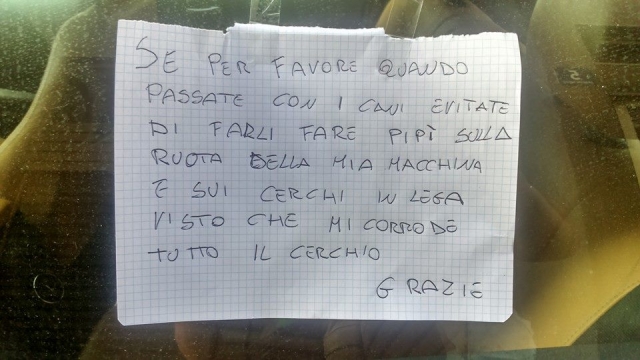 SE PER FAVORE QUANDO
PASSATE CON I CANI EVITATE
DI FARLI FARE PIPÌ SULLA
RUOTA DELLA MIA MACCHINA
E SUI CERCHI IN LEGA
VISTO CHE MI CORRODE
TUTTO IL CERCHIO
GRAZIE